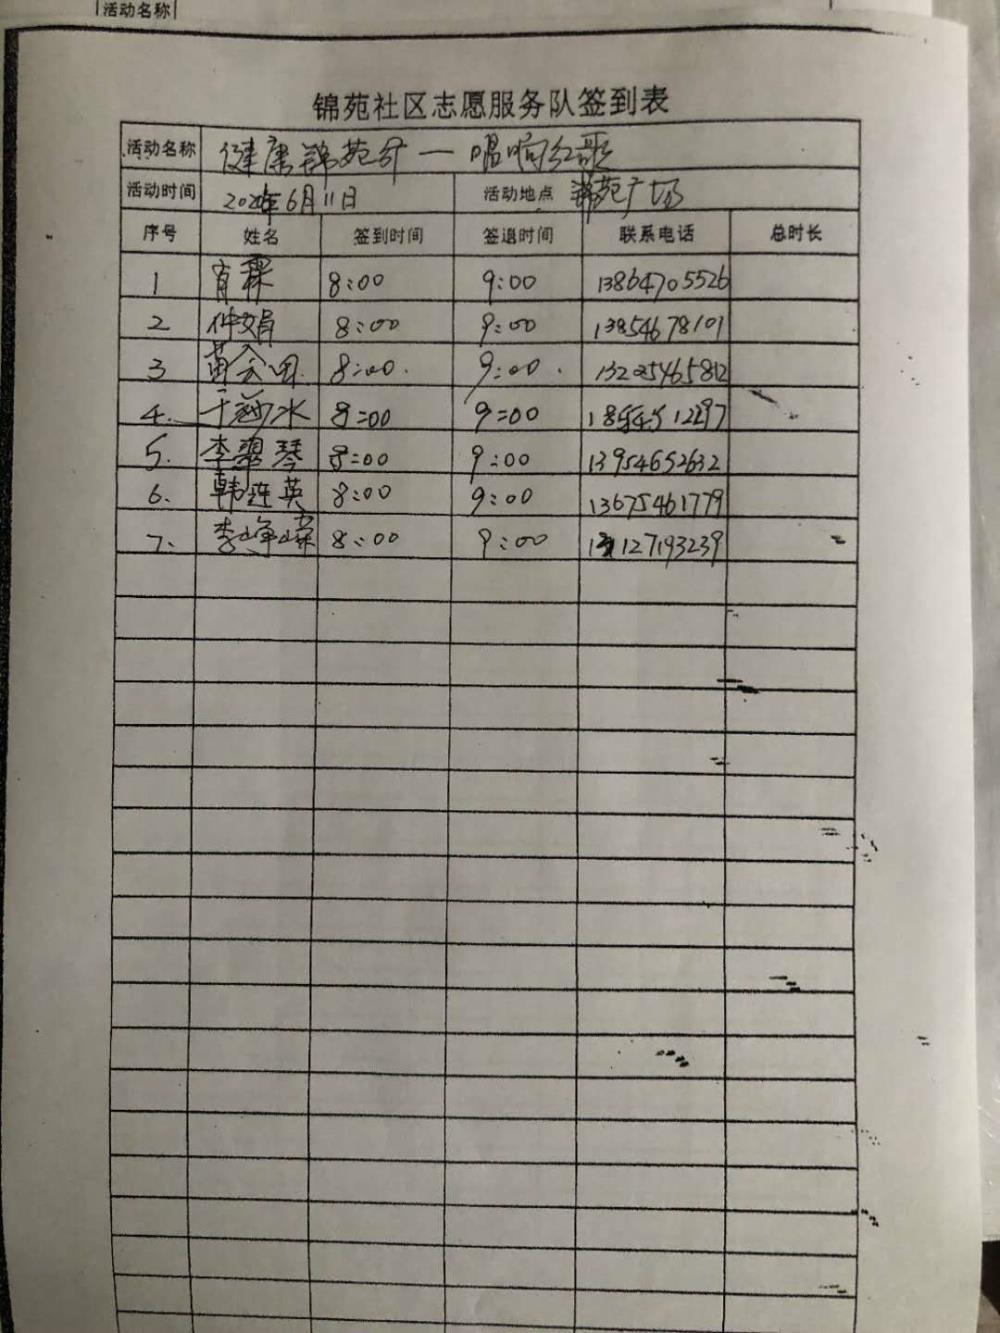 活动名称
锦苑社区志愿服务队签到表
活动名称 健康锦苑行一唱响红歌
活动时间 2020年6月11日 活动地点 锦苑广场
序号 姓名 签到时间 签退时间 联系电话 总时长
1 肖霖 8:00 9:00 13864705526
2 仲娟 8:00 9:00 13854678101
3 8:00. 9:00. 13205465812
4. 8:00 9:00
5. 李翠琴 8:00 9:00 13954652632
6. 韩连英 8:00 9:00 13675461779
7. 李峥嵘 8:00 9:00 13127193239